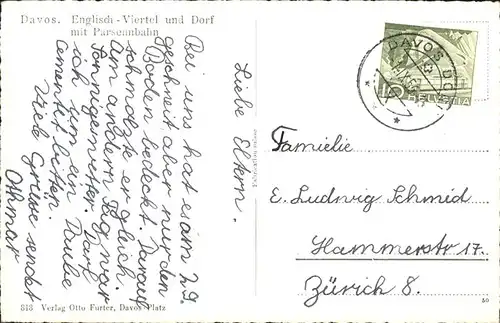 Davos. Englisch-Viertel und Dorf
mit Parsennbahn
Liebe Eltern.
Bei uns hat es am 29.
geschneit aber nur den
Boden bedeckt. Darauf
schmolzte er gleich.
Am andern Tag war
Sonnigeswetter. Darf
ich um ein Taube
bitten.
Viele Grüsse sendet
Othmar
818 Verlag Otto Furter, Davos-Platz
DAVOS DORF
HELVETIA
10
Famielie
E. Ludwig Schmid
Hammerstr 17.
Zürich 8.
50